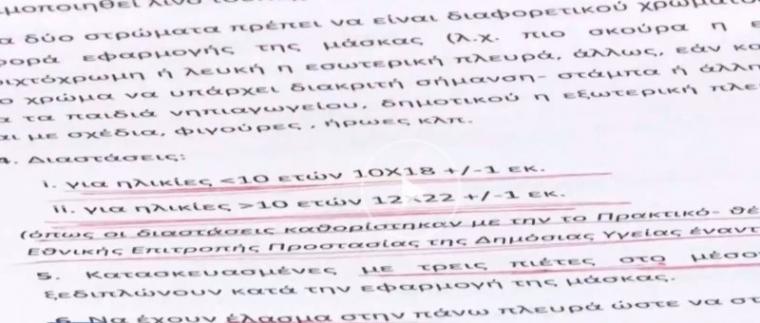 α δύο στρώματα πρέπει να είναι διαφορετικού χρώματο
φορά εφαρμογής της μάσκας (λ.χ. πιο σκούρα η ε
οιχτόχρωμη ή λευκή η εσωτερική πλευρά, άλλως, εάν κα
ο χρώμα να υπάρχει διακριτή σήμανση- στάμπα ή άλλη
α τα παιδιά νηπιαγωγείου, δημοτικού η εξωτερική πλε
αι με σχέδια, φιγούρες , ήρωες κλπ.
4. Διαστάσεις:
i. για ηλικίες <10 ετών 10X18 +/-1 εκ.
ii. για ηλικίες >10 ετών 12x22 +/-1 εκ.
(όπως οι διαστάσεις καθορίστηκαν με την το Πρακτικό- θέ
Εθνικής Επιτροπής Προστασίας της Δημόσιας Υγείας έναντ
5. Κατασκευασμένες με τρεις πιέτες στο μέσο
ξεδιπλώνουν κατά την εφαρμογή της μάσκας.
6. Να έχουν έλασμα στην πάνω πλευρά ώστε να στ